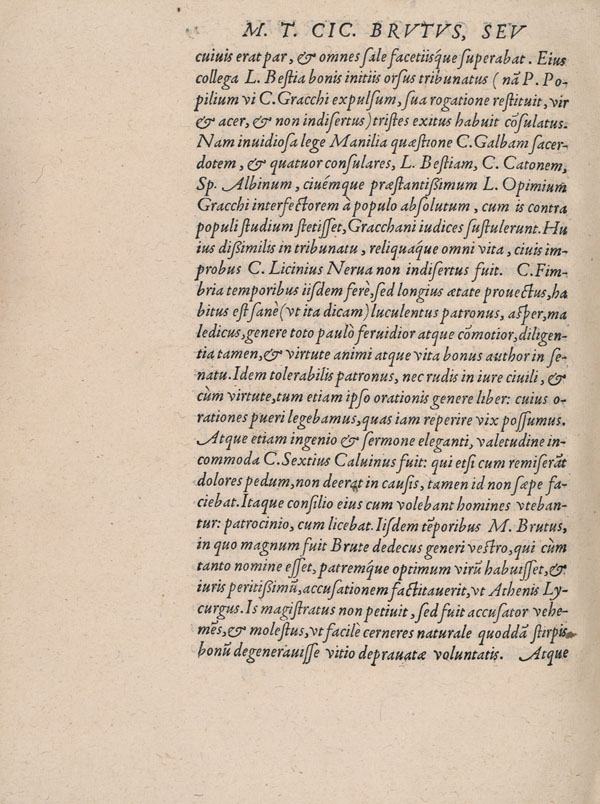 M. T. CIC. BRVTVS, SEV
cuiuis erat par, & omnes sale facetiisque superabat. Eius
collega L. Bestia bonis initiis orsus tribunatus (nã P. Po-
pilium vi C. Gracchi expulsum, sua rogatione restituit, vir
& acer, & non indisertus) tristes exitus habuit cõsulatus.
Nam inuidiosa lege Manilia quæstione C. Galbam sacer-
dotem, & quatuor consulares, L. Bestiam, C. Catonem,
Sp. Albinum, ciuémque præstantißimum L. Opimium
Gracchi interfectorem à populo absolutum, cum is contra
populi studium stetisset, Gracchani iudices sustulerunt. Hu
ius dißimilis in tribunatu, reliquaque omni vita, ciuis im-
probus C. Licinius Nerua non indisertus fuit. C. Fim-
bria temporibus iisdem ferè, sed longius ætate prouectus, ha
bitus est sanè (vt ita dicam) luculentus patronus, asper, ma
ledicus, genere toto paulò feruidior atque cõmotior, diligen-
tia tamen, & virtute animi atque vita bonus author in se-
natu. Idem tolerabilis patronus, nec rudis in iure ciuili, &
cùm virtute, tum etiam ipso orationis genere liber: cuius o-
rationes pueri legebamus, quas iam reperire vix possumus.
Atque etiam ingenio & sermone eleganti, valetudine in-
commoda C. Sextius Caluinus fuit: qui etsi cum remiserãt
dolores pedum, non deerat in causis, tamen id non sæpe fa-
ciebat. Itaque consilio eius cum volebant homines vteban-
tur: patrocinio, cum licebat. Iisdem tẽporibus M. Brutus,
in quo magnum fuit Brute dedecus generi vestro, qui cùm
tanto nomine esset, patremque optimum virũ habuisset, &
iuris peritißimũ, accusationem factitauerit, vt Athenis Ly-
curgus. Is magistratus non petiuit, sed fuit accusator vehe-
mẽs, & molestus, vt facilè cerneres naturale quoddã stirpis
bonũ degenerauisse vitio deprauatæ voluntatis. Atque